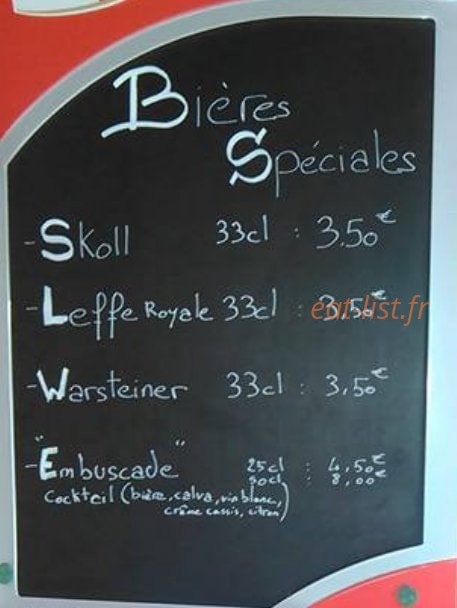 Bières
Spéciales
- Skoll 33cl : 3.50€
- Leffe Royale 33cl : 3,50€
eat-list.fr
- Warsteiner 33cl : 3,50€
- "Embuscade" 25cl : 4,50€
50cl : 8,00€
Cocktail (bière, calva, vin blanc,
crème cassis, citron)